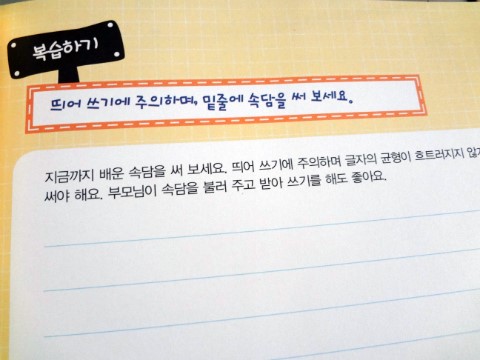 복습하기
띄어 쓰기에 주의하며, 밑줄에 속담을 써 보세요.
지금까지 배운 속담을 써 보세요. 띄어 쓰기에 주의하며 글자의 균형이 흐트러지지 않
써야 해요. 부모님이 속담을 불러 주고 받아 쓰기를 해도 좋아요.